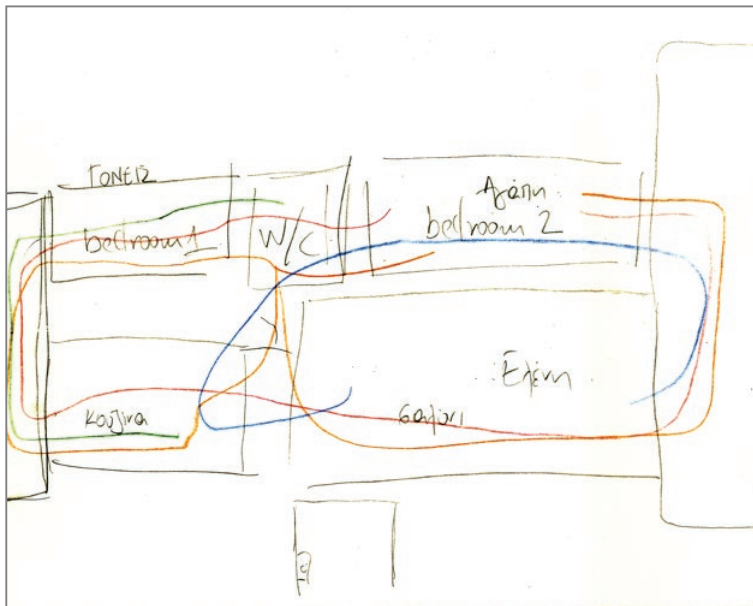 ΓΟΝΕΙΣ
bedroom 1
W/C
Αγάπη
bedroom 2
Ελένη
κουζίνα
σαλόνι